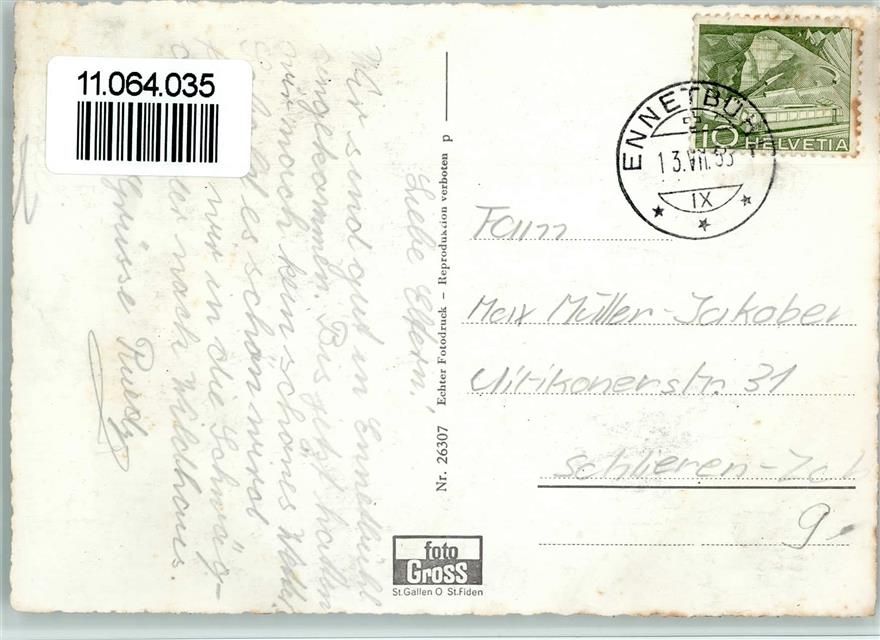 11.064.035
Liebe Eltern!
Wir sind gut in Ennetbühl
eingekommen. Bis jetzt haben
wir noch kein schönes
es schön wird
wir in die Schwäg-
oder nach Wildhaus.
Grüsse Ruedi
Nr. 26307 Echter Fotodruck – Reproduktion verboten p
foto
Gross
St.Gallen O St.Fiden
HELVETIA
10
ENNETBÜHL
13.VII.53
IX
Fam
Max Müller-Jakober
Uitikonerstr. 31
Schlieren-Zch
9.